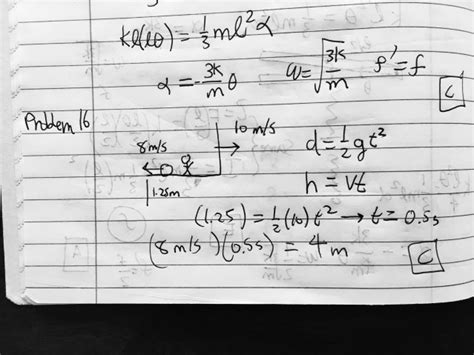 kl(lθ) = 1/3 ml²α
α = -3k/m θ
ω = √3k/m
f' = f
C
Problem 16
8 m/s
10 m/s
1.25m
d = 1/2 gt²
h = vt
(1.25) = 1/2 (10) t² → t = 0.5s
(8 m/s)(0.5s) = 4 m
C